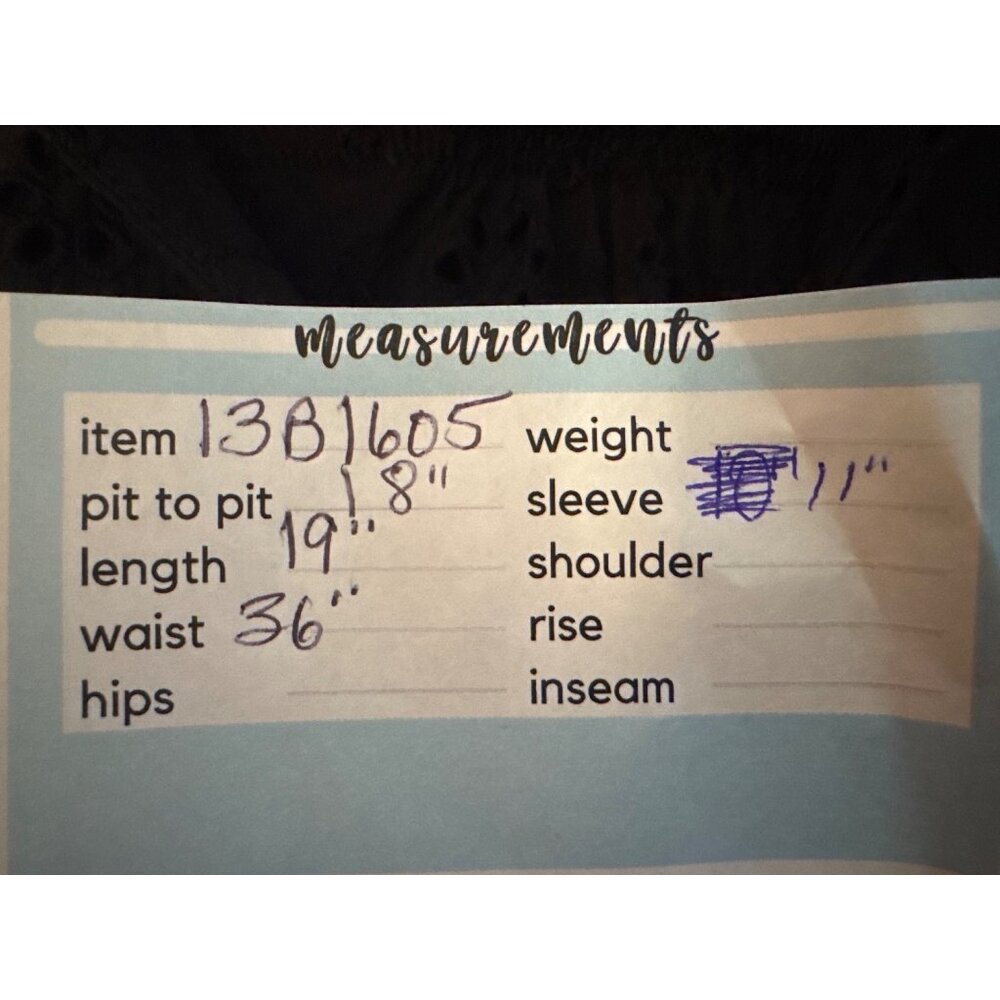 measurements
item 13B1605
pit to pit 18"
length 19"
waist 36"
hips
weight
sleeve 11"
shoulder
rise
inseam